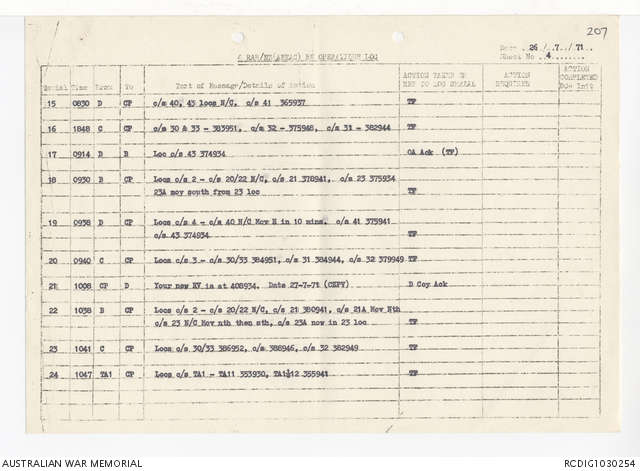 207
6 RAR/NZ(ANZAC) BN OPERATIONS LOG
Date 26 / 7 / 71
Sheet No 4
Serial Time From To Text of Message/Details of Action ACTION TAKEN OR REF TO LOG SERIAL ACTION REQUIRED ACTION COMPLETED Dse Init
15 0830 D CP c/s 40, 43 locs N/C, c/s 41 365937 TP
16 1848 C CP c/s 30 & 33 - 383951, c/s 32 - 375948, c/s 31 - 382944 TP
17 0914 D B Loc c/s 43 374934 OA Ack (TP)
18 0930 B CP Locs c/s 2 - c/s 20/22 N/C, c/s 21 378941, c/s 23 375934
23A mov south from 23 loc TP
19 0938 D CP Locs c/s 4 - c/s 40 N/C Mov N in 10 mins, c/s 41 375941
c/s 43 374934 TP
20 0940 C CP Locs c/s 3 - c/s 30/33 384951, c/s 31 384944, c/s 32 379949 TP
21 1008 CP D Your new RV is at 408934. Date 27-7-71 (CKPY) D Coy Ack
22 1038 B CP Locs c/s 2 - c/s 20/22 N/C, c/s 21 380941, c/s 21A Mov Nth
c/s 23 N/C Mov nth then sth, c/s 23A now in 23 loc TP
23 1041 C CP Locs c/s 30/33 386952, c/s 388946, c/s 32 382949 TP
24 1047 TA1 CP Locs c/s TA1 - TA11 353930, 355941 TP
AUSTRALIAN WAR MEMORIAL
RCDIG1030254